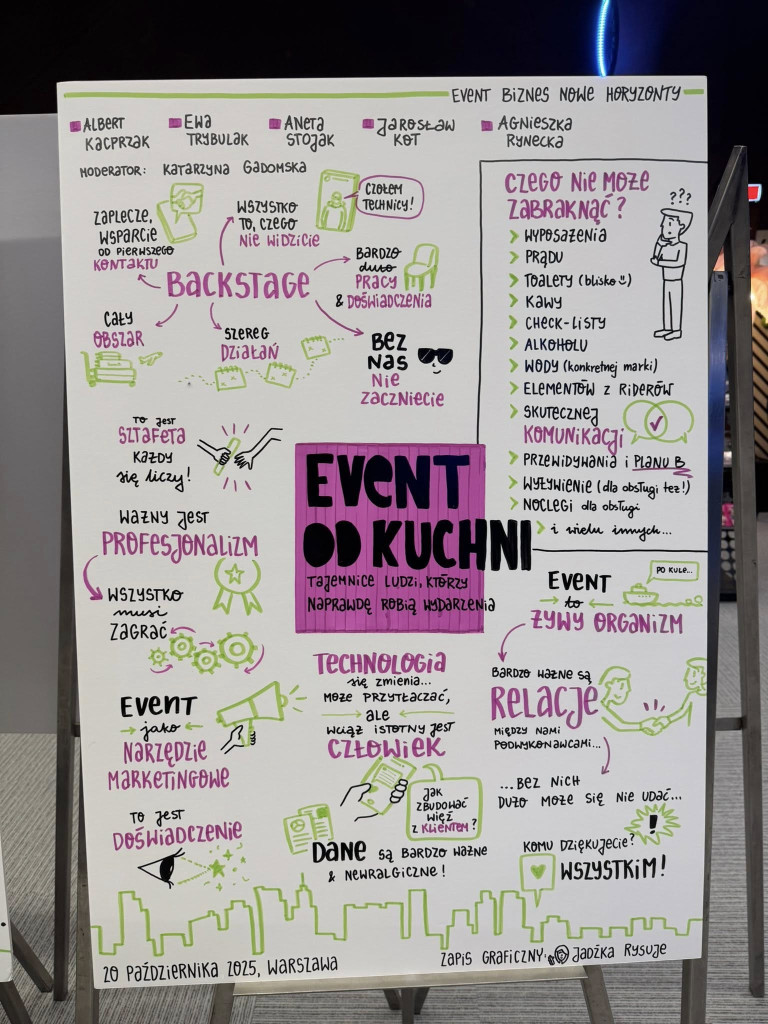 EVENT BIZNES NOWE HORYZONTY
ALBERT KACPRZAK
EWA TRYBULAK
ANETA STOJAK
JAROSŁAW KOT
AGNIESZKA RYNECKA
MODERATOR: KATARZYNA GADOMSKA
BACKSTAGE
ZAPLECZE,
WSPARCIE
OD PIERWSZEGO
KONTAKTU
WSZYSTKO
TO, CZEGO
NIE WIDZICIE
CZOŁEM
TECHNICY!
BARDZO
dużo
PRACY
& DOŚWIADCZENIA
CAŁY
OBSZAR
SZEREG
DZIAŁAŃ
BEZ
NAS
NIE
ZACZNIECIE
CZEGO NIE MOŻE
ZABRAKNĄĆ?
???
WYPOSAŻENIA
PRĄDU
TOALETY (blisko)
KAWY
CHECK-LISTY
ALKOHOLU
WODY (konkretnej marki)
ELEMENTÓW Z RIDERÓW
SKUTECZNEJ
KOMUNIKACJI
PRZEWIDYWANIA i PLANU B
WYŻYWIENIE (dla obsługi też!)
NOCLEGI dla obsługi
i wielu innych...
TO JEST
SZTAFETA
KAŻDY
się liczy!
WAŻNY JEST
PROFESJONALIZM
WSZYSTKO
musi
ZAGRAĆ
EVENT
OD KUCHNI
TAJEMNICE LUDZI, KTÓRZY
NAPRAWDĘ ROBIĄ WYDARZENIA
EVENT
to
ŻYWY ORGANIZM
PO KULE...
EVENT
jako
NARZĘDZIE
MARKETINGOWE
TECHNOLOGIA
się zmienia...
MOŻE PRZYTŁACZAĆ,
ale
WCIĄŻ ISTOTNY JEST
CZŁOWIEK
BARDZO WAŻNE SĄ
RELACJE
MIĘDZY NAMI
PODWYKONAWCAMI...
...BEZ NICH
DUŻO MOŻE SIĘ NIE UDAĆ...
!
TO JEST
DOŚWIADCZENIE
JAK
ZBUDOWAĆ
WIĘŹ
Z KLIENTEM?
DANE SĄ BARDZO WAŻNE
& NEWRALGICZNE!
KOMU DZIĘKUJECIE?
WSZYSTKIM!
20 PAŹDZIERNIKA 2025, WARSZAWA
ZAPIS GRAFICZNY: JADŹKA RYSUJE